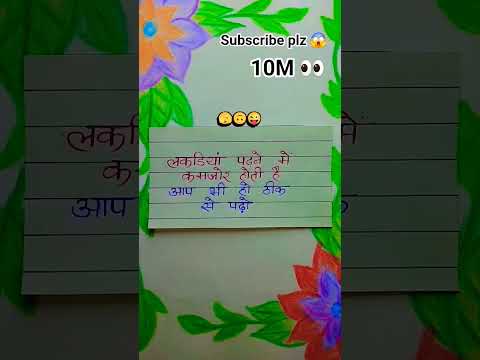 Subscribe plz 😱
10M 👀
लकडियां पढने में
कमजोर होती है
आप भी हो ठीक
से पढ़ो